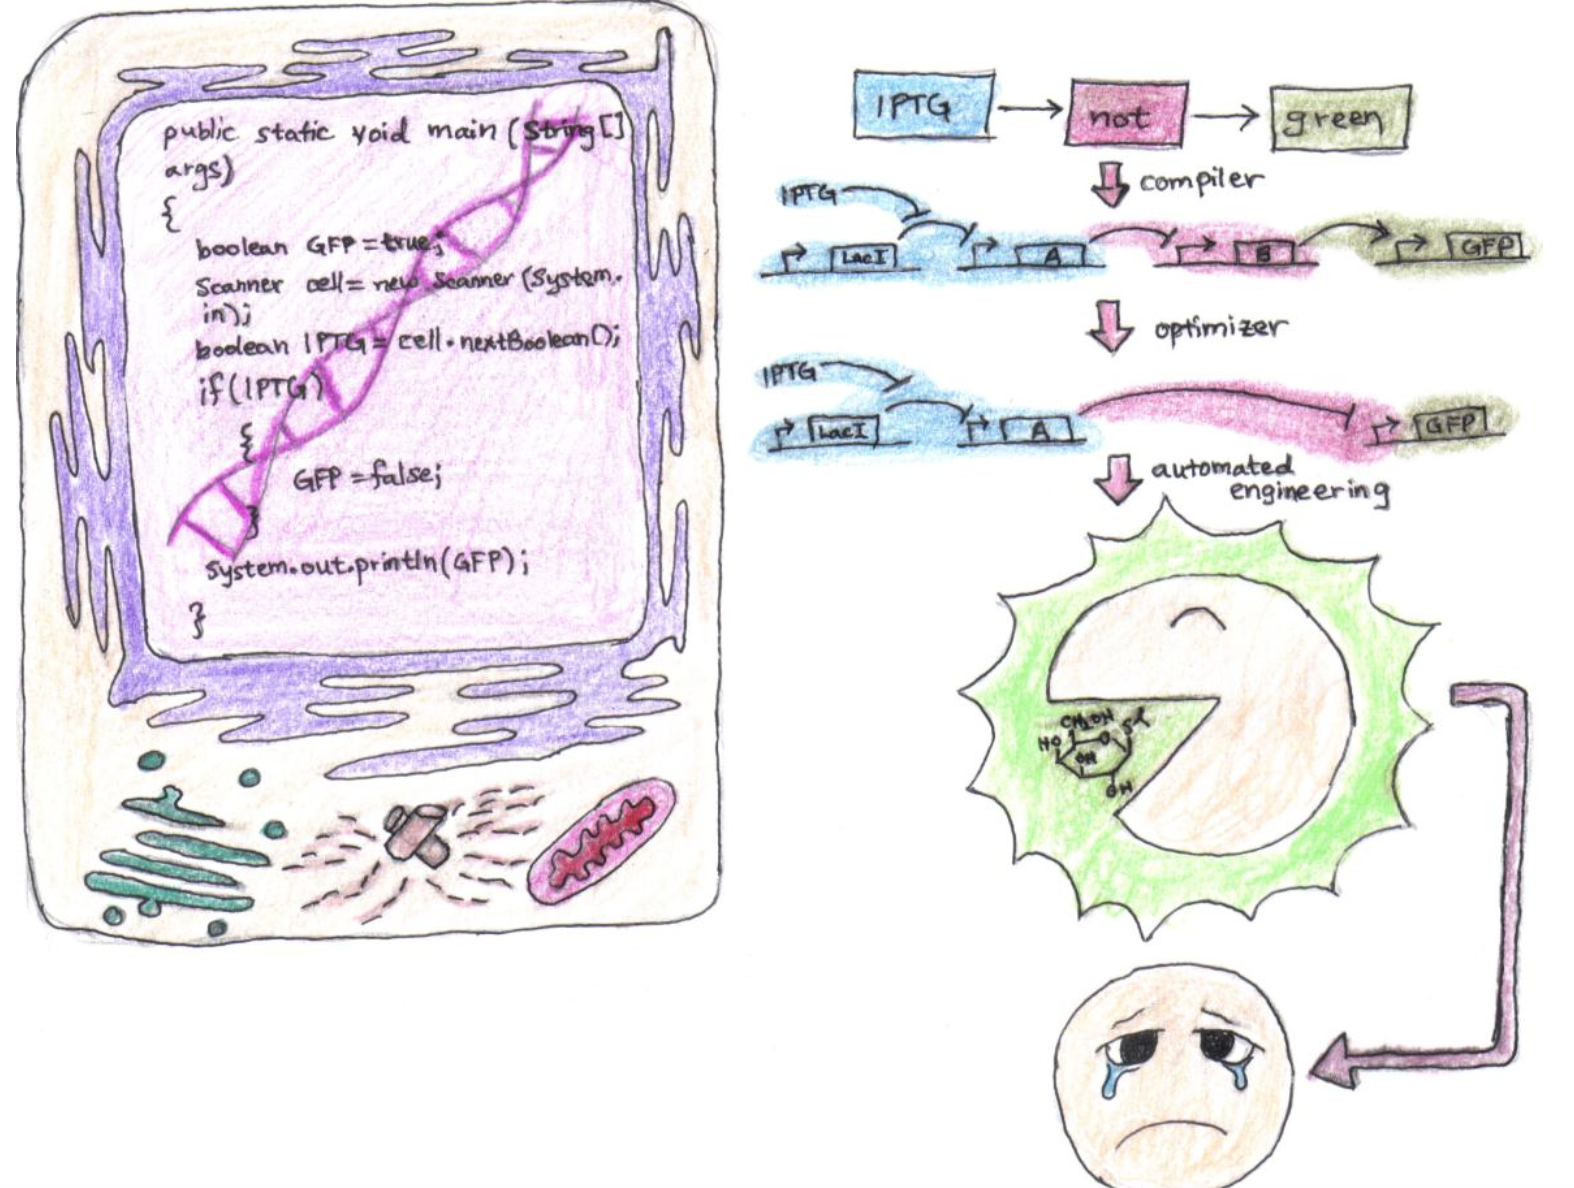 public static void main (String[]
args)
{
boolean GFP = true;
Scanner cell = new Scanner (System.
in);
boolean IPTG = cell.nextBoolean();
if (IPTG)
{
GFP = false;
}
System.out.println(GFP);
}
IPTG
not
green
compiler
IPTG
LacI
A
B
GFP
optimizer
IPTG
LacI
A
GFP
automated
engineering
CH2OH
HO
O
OH
OH